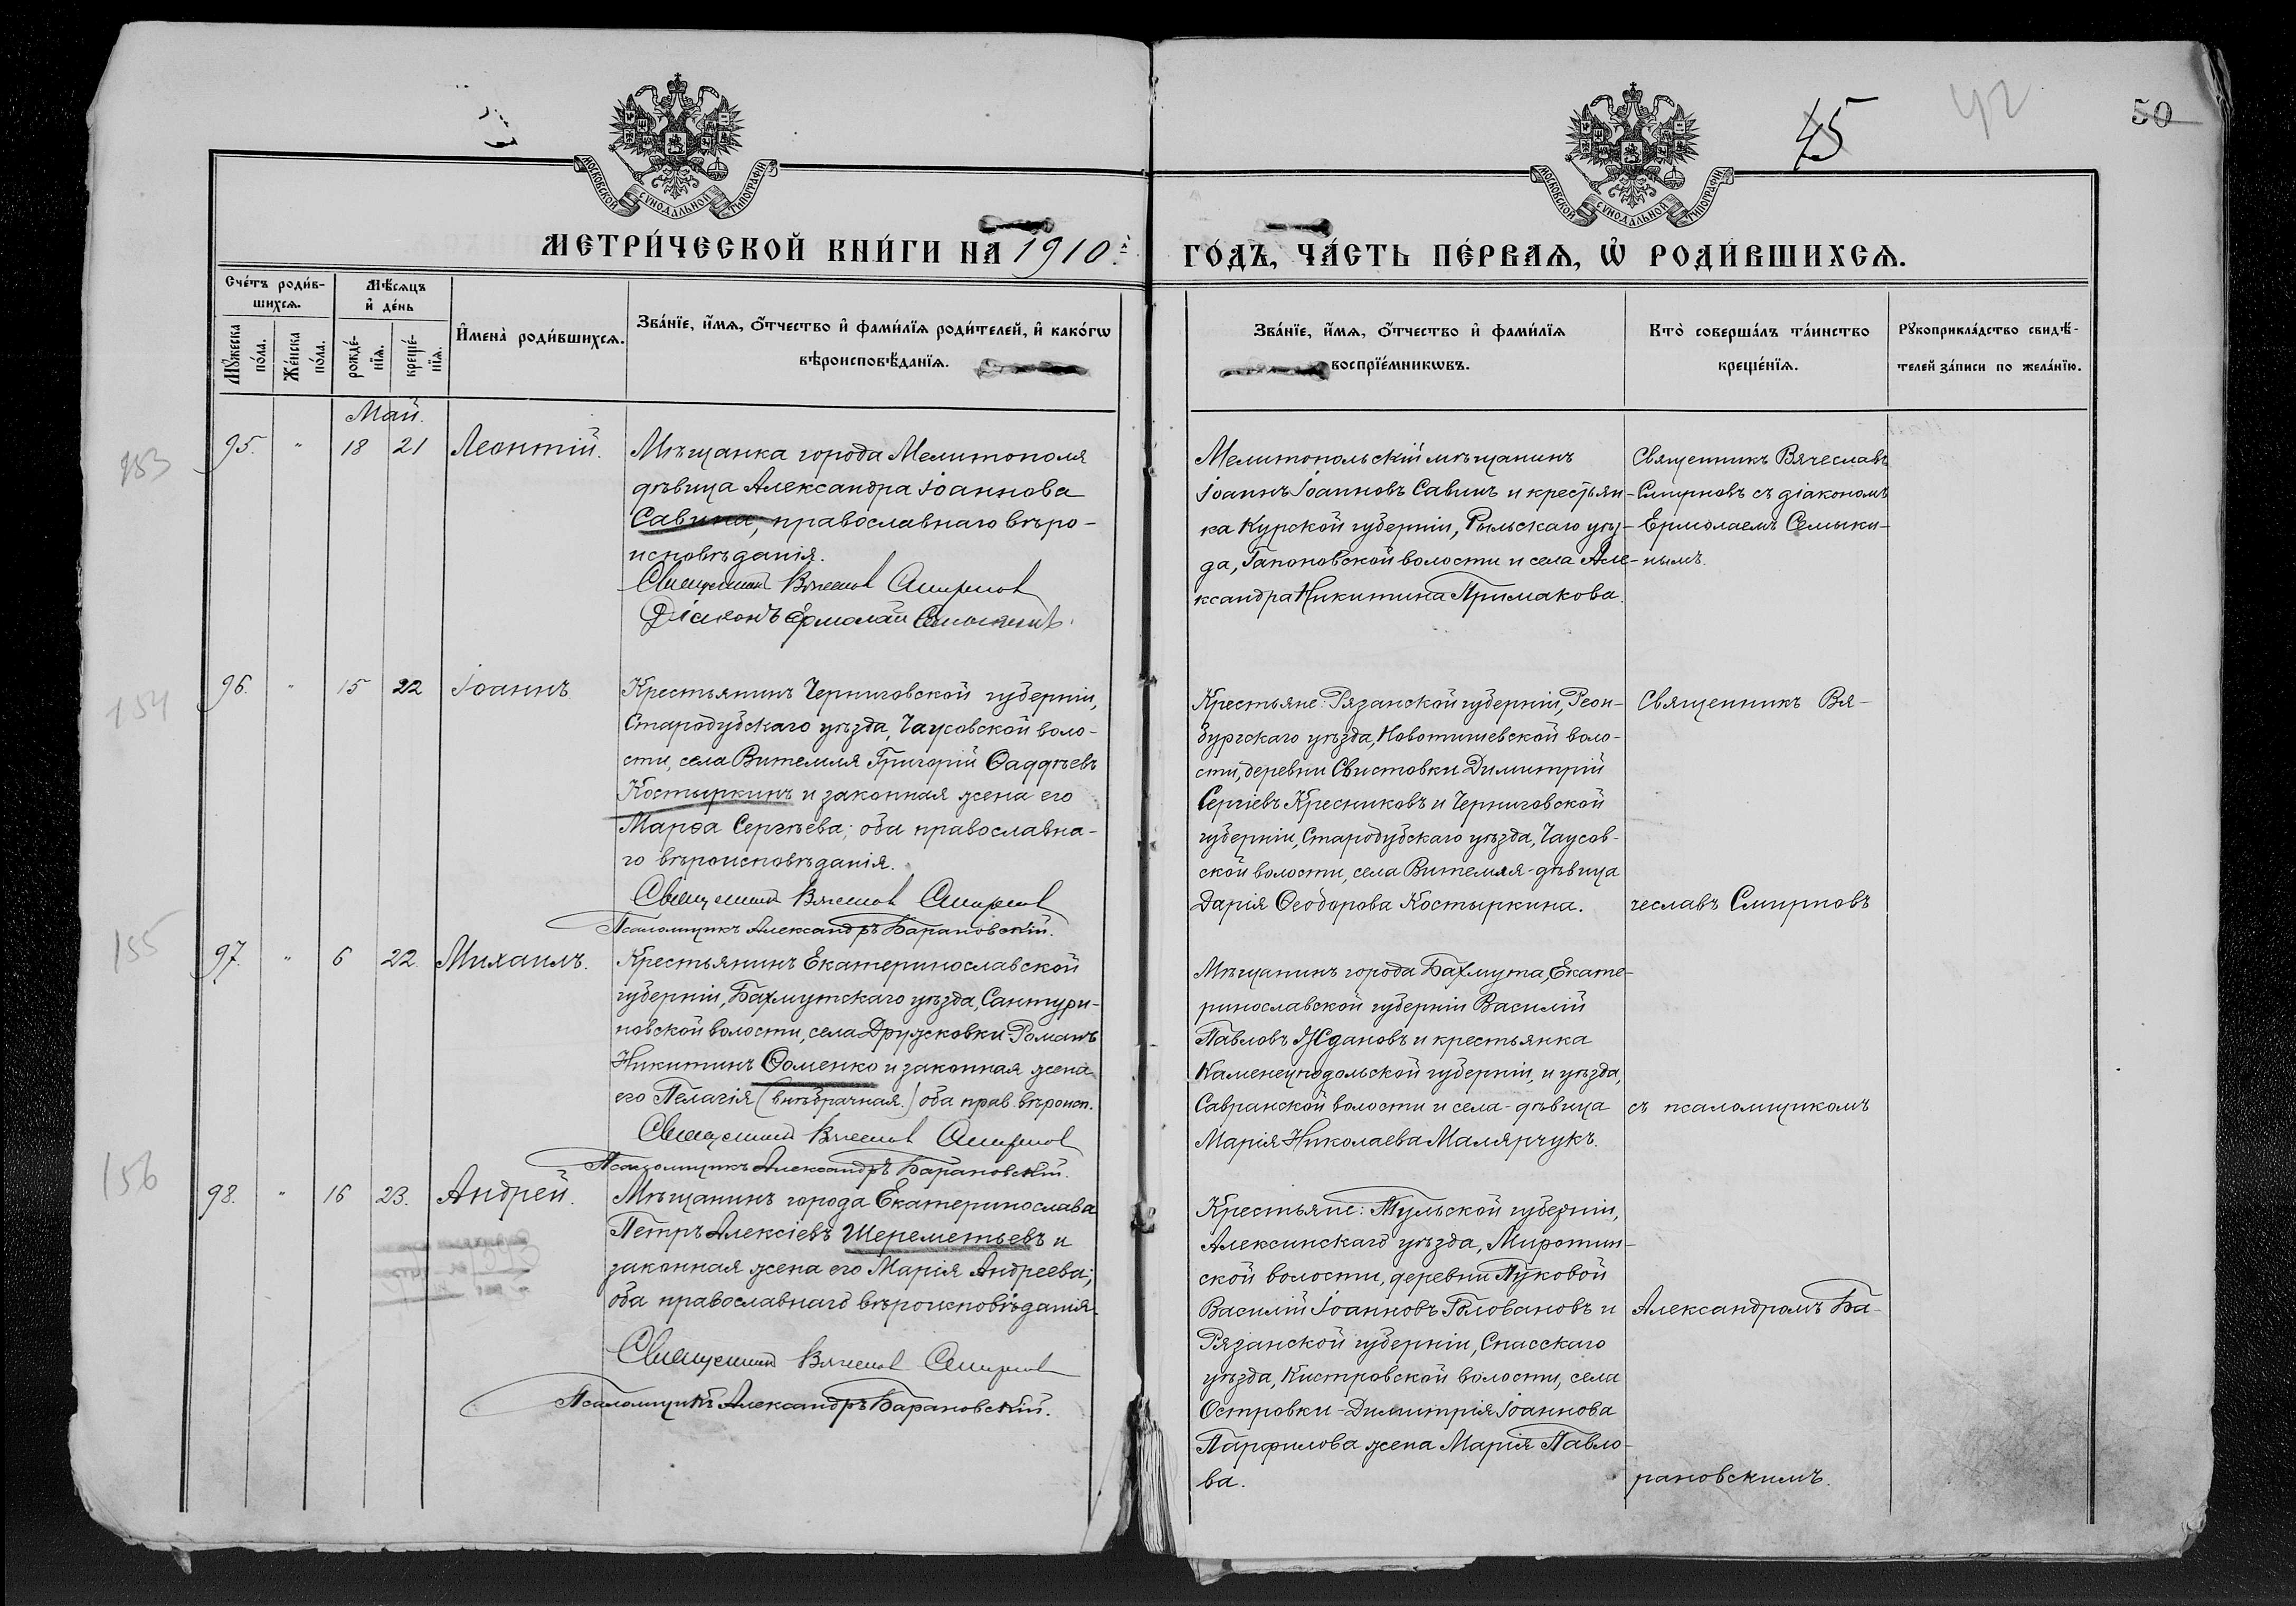 45
42
50
МОСКОВСКОЙ СУНОДАЛЬНОЙ ТИПОГРАФІИ
МОСКОВСКОЙ СУНОДАЛЬНОЙ ТИПОГРАФІИ
МЕТРИ́ЧЕСКОЙ КНИ́ГИ НА 1910.
ГО́ДЪ, ЧА́СТЬ ПЕ́РВАѦ, Ѡ҆ РОДИ́ВШИХСѦ.
Сче́тъ роди́в-
шихсѧ.
Мꙋ́жеска по́ла.
Же́нска по́ла.
Мѣ́сѧцъ
и҆ де́нь
рожде́-
нїѧ.
креще́-
нїѧ.
И҆мена̀ роди́вшихсѧ.
Зва́нїе, и҆́мѧ, ѻ҆́тчество и҆ фами́лїѧ роди́телей, и҆ како́гѡ
вѣроисповѣ́данїѧ.
Зва́нїе, и҆́мѧ, ѻ҆́тчество и҆ фами́лїѧ
воспрїе́мникѡвъ.
Кто̀ соверша́лъ та́инство
креще́нїѧ.
Рꙋкоприкла́дство свидѣ́-
телей за́писи по жела́нїю.
Май.
153
95. " 18 21 Леонтій.
Мѣщанка города Мелитополя
дѣвица Александра Іоаннова
Савина, православнаго вѣро-
исповѣданія.
Священникъ Вячеслав Смирнов
Діаконъ Ермолай Семыкинъ.
Мелитопольскій мѣщанинъ
Іоаннъ Іоанновъ Савинъ и крестьян-
ка Курской губерніи, Рыльскаго уѣз-
да, Гапоновской волости и села Але-
ксандра Никитина Примакова.
Священникъ Вячеславъ
Смирновъ съ діакономъ
Ермолаемъ Семыки-
нымъ.
154
96. " 15 22 Іоаннъ.
Крестьянинъ Черниговской губерніи,
Стародубскаго уѣзда, Чаусовской воло-
сти, села Витемля Григорій Ѳаддѣевъ
Костыркинъ и законная жена его
Марѳа Сергѣева; оба православна-
го вѣроисповѣданія.
Священник Вячеслав Смирнов
Псаломщикъ Александръ Барановскій.
Крестьяне: Рязанской губерніи, Реон-
бургскаго уѣзда, Новотишевской воло-
сти, деревни Свистовки Димитрій
Сергіевъ Кресниковъ и Черниговской
губерніи, Стародубскаго уѣзда, Чаусов-
ской волости, села Витемля - дѣвица
Дарія Ѳеодорова Костыркина.
Священникъ Вя-
чеславъ Смирновъ
155
97. " 6 22. Михаилъ.
Крестьянинъ Екатеринославской
губерніи, Бахмутскаго уѣзда, Сантури-
новской волости, села Дружковки Романъ
Никитинъ Ѳоменко и законная жена
его Пелагія (внѣбрачная.) оба прав. вѣроисп.
Священник Вячеслав Смирнов
Псаломщикъ Александръ Барановскій.
Мѣщанинъ города Бахмута, Екате-
ринославской губерніи Василій
Павловъ Ждановъ и крестьянка
Каменецподольской губерніи, и уѣзда,
Савранской волости и села - дѣвица
Марія Николаева Малярчукъ.
съ псаломщикомъ
156
98. " 16 23. Андрей.
Мѣщанинъ города Екатеринослава
Петръ Алексіевъ Шереметьевъ и
законная жена его Марія Андреева;
оба православнаго вѣроисповѣданія.
Священник Вячеслав Смирнов
Псаломщикъ Александръ Барановскій.
Крестьяне: Тульской губерніи,
Алексинскаго уѣзда, Миротин-
ской волости, деревни Пуковой
Василій Іоанновъ Головановъ и
Рязанской губерніи, Спасскаго
уѣзда, Кистровской волости, села
Островки - Димитрія Іоаннова
Парфилова жена Марія Павло-
ва.
Александромъ Ба-
рановскимъ.